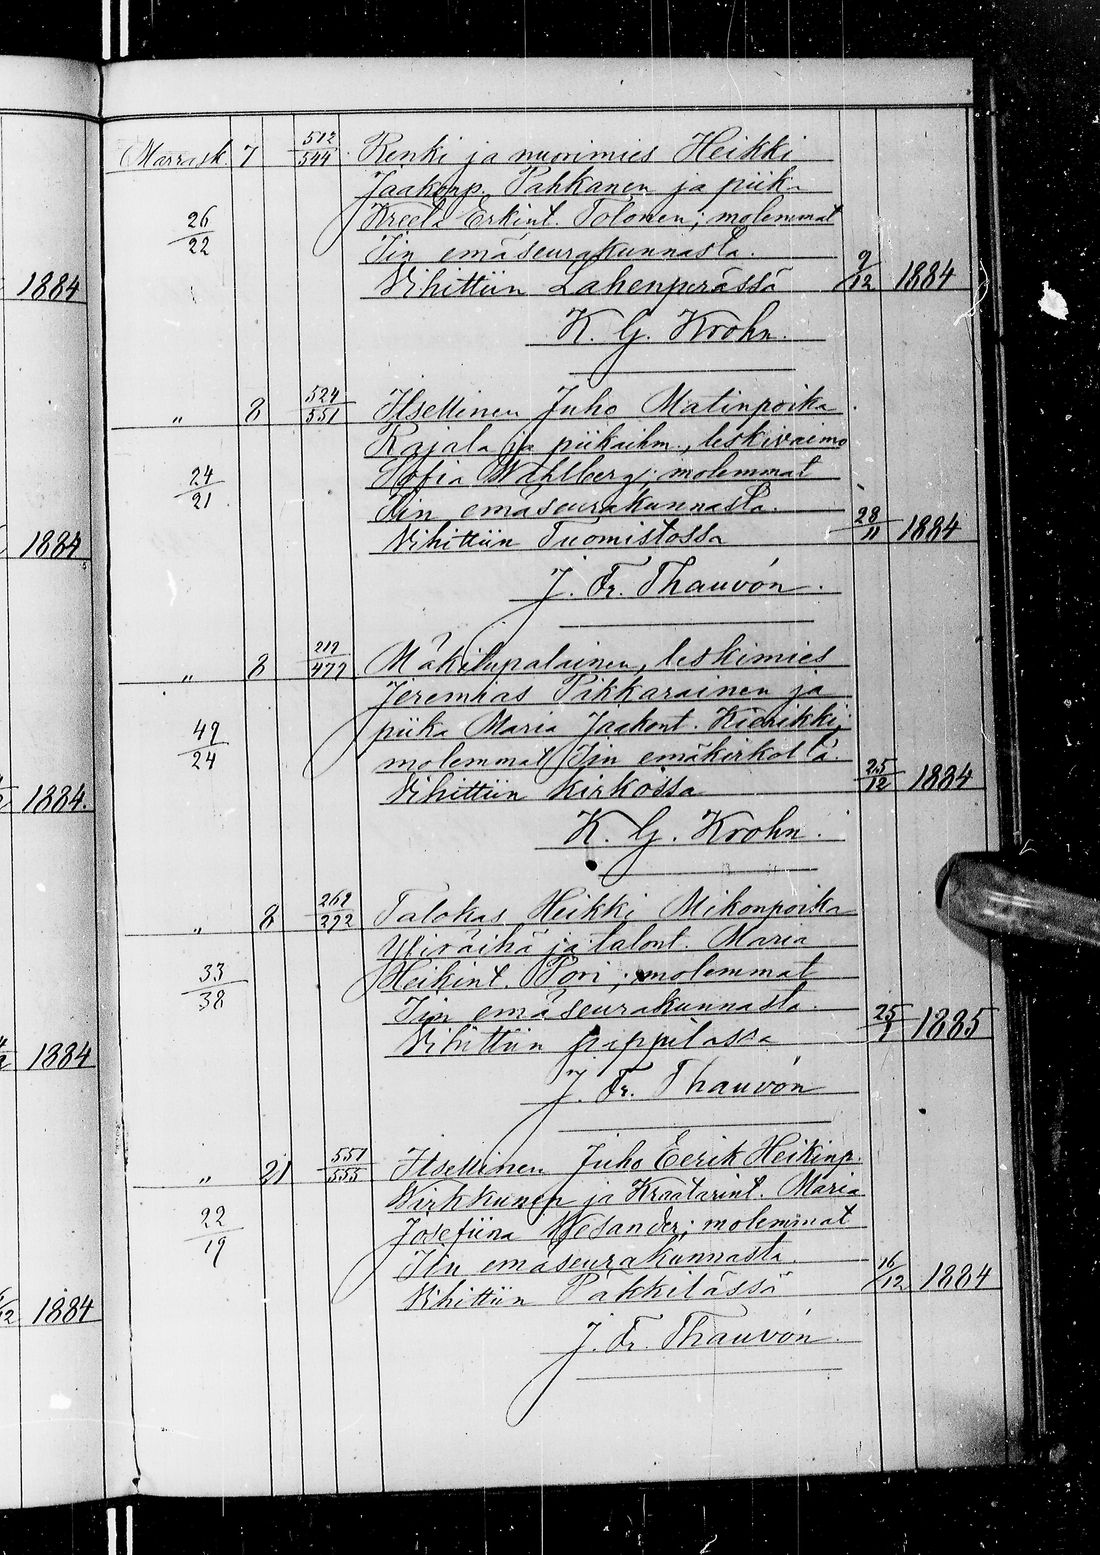 Marrask. 7 512/544 Renki ja nuorimies Heikki
Jaakonp. Pahkanen ja piika
26/22 Kreeta Erkint. Tolonen; molemmat
Iin emäseurakunnasta.
1884 Vihittiin Lahenperässä 9/12 1884
K. G. Krohn.
„ 8 524/551 Itsellinen Juho Matinpoika
Rajala ja piikaihm., leskivaimo
24/21 Sofia Wahlberg; molemmat
Iin emäseurakunnasta.
1884 Vihittiin Tuomistossa 28/11 1884
J. Fr. Thauvón.
„ 8 212/477 Mäkitupalainen, leskimies
Jeremias Pikkarainen ja
49/24 piika Maria Jaakont. Kierikki;
molemmat Iin emäkirkolta.
1884. Vihittiin kirkossa 25/12 1884
K. G. Krohn.
„ 8 262/272 Talokas Heikki Mikonpoika
ja talont. Maria
33/38 Heikint. Pori; molemmat
Iin emäseurakunnasta.
1884 Vihittiin pappilassa 25/1 1885
J. Fr. Thauvón
„ 21 551/555 Itsellinen Juho Eerik Heikinp.
Wirkkunen ja Kraatarint. Maria
22/19 Josefiina Wesander; molemmat
Iin emäseurakunnasta.
1884 Vihittiin Pakkilässä 16/12 1884
J. Fr. Thauvón.